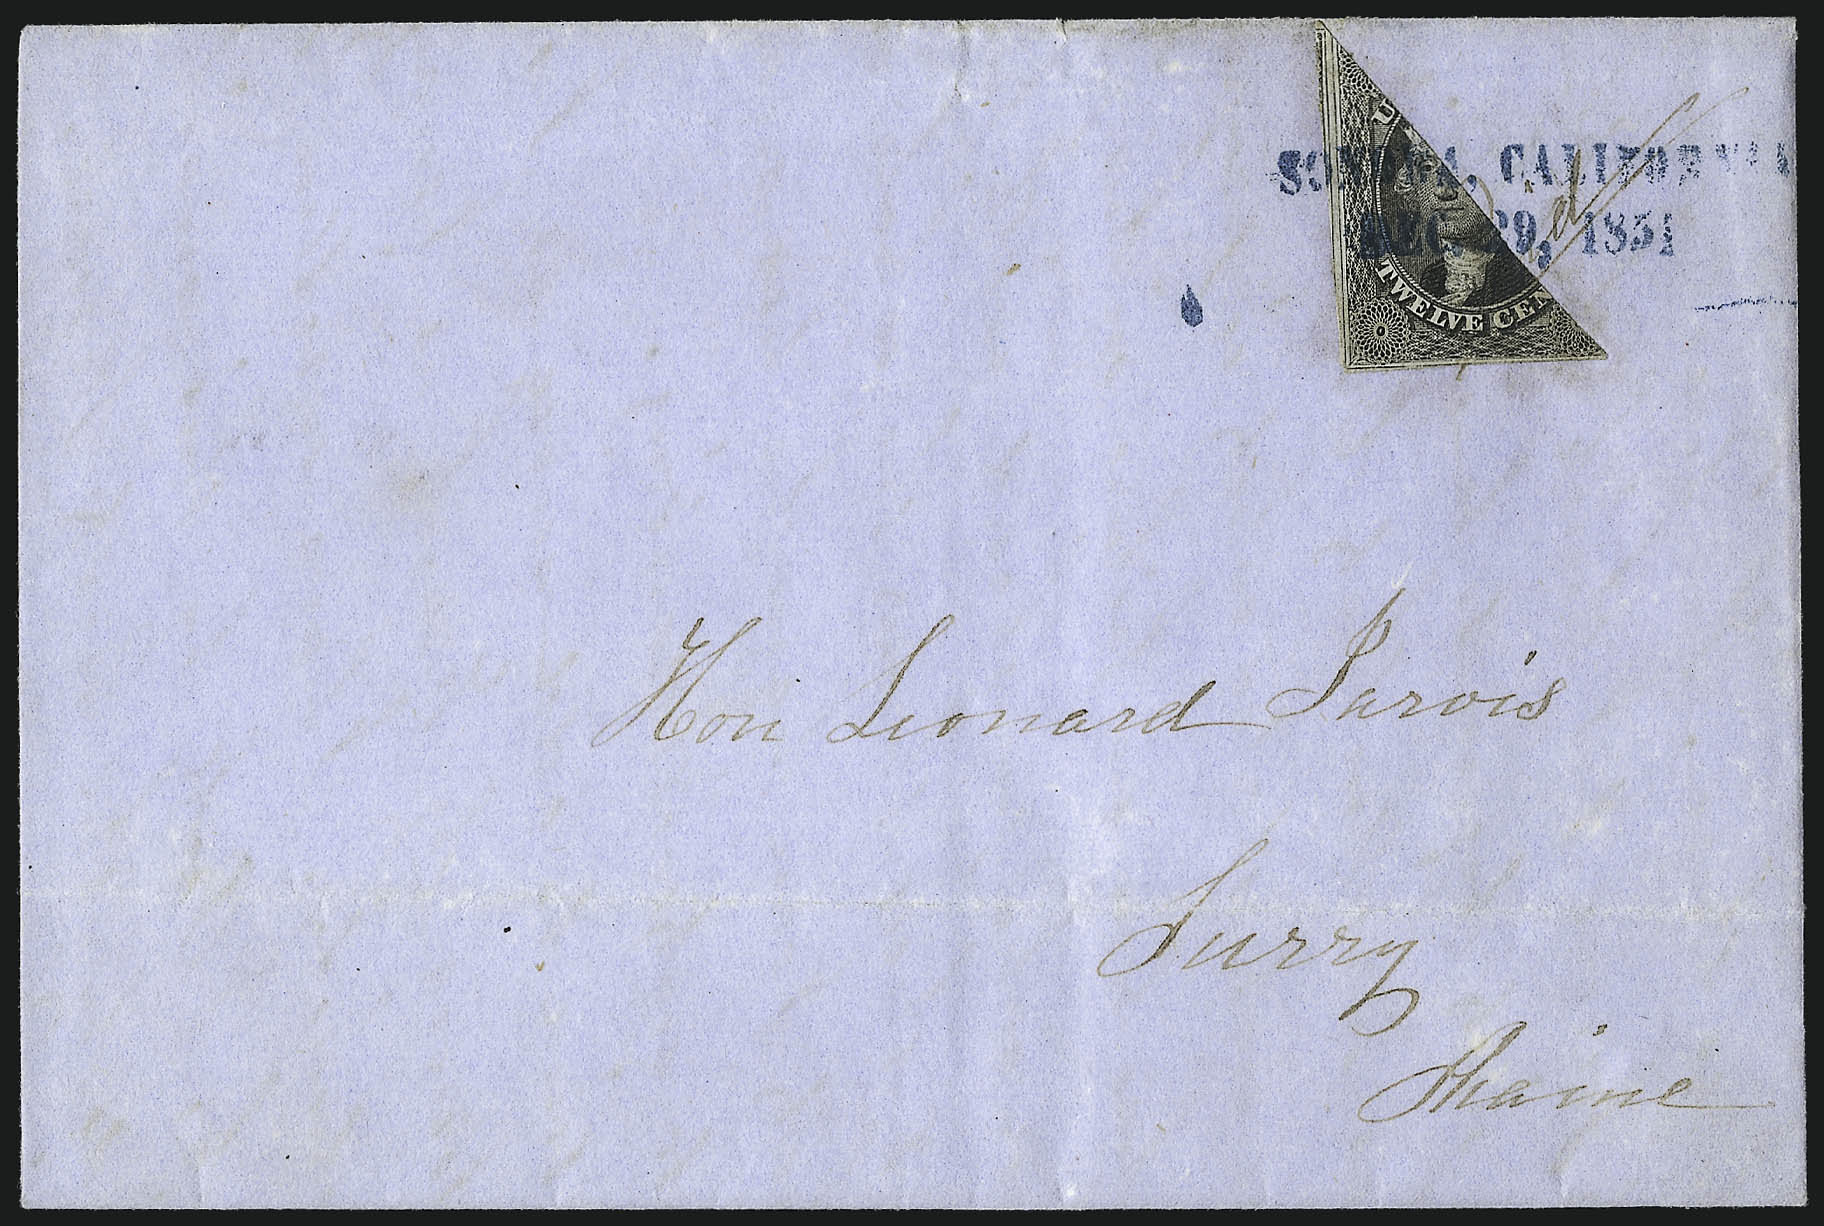 U
SONOMA, CALIFORNIA
DEC. 29, 1851
TWELVE CEN
Hon Leonard Jarvis
Surry
Maine